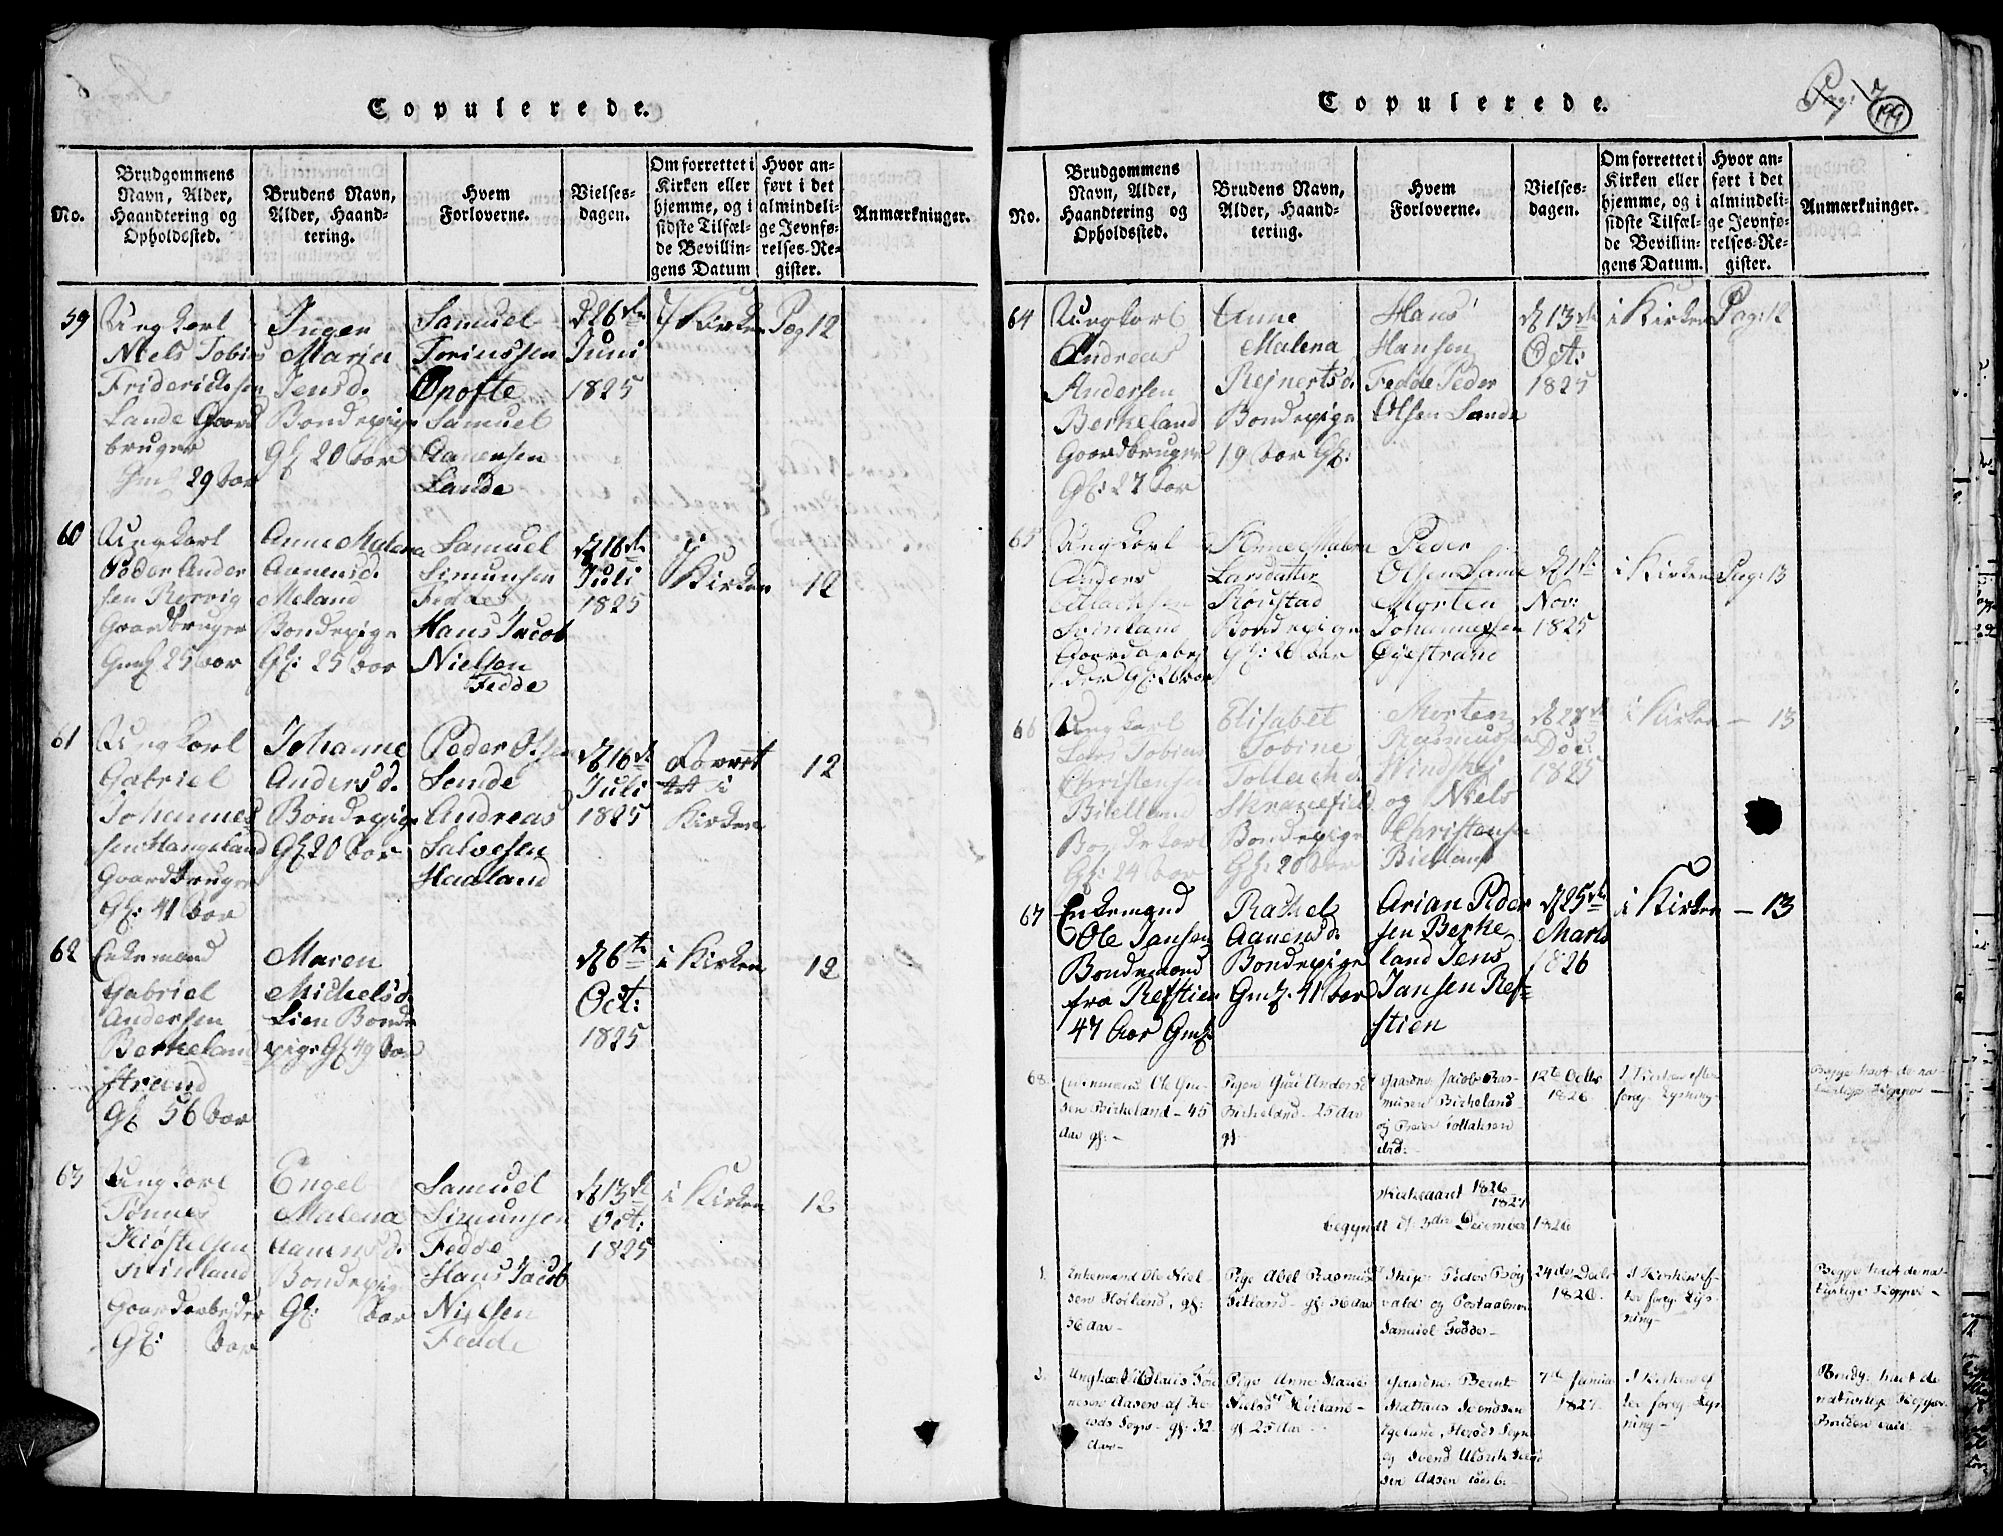 Copulerede.
No.
Brudgommens
Navn, Alder,
Haandtering og
Opholdssted.
Brudens Navn,
Alder, Haand-
tering.
Hvem
Forloverne.
Vielses-
dagen.
Om forrettet i
Kirken eller
hjemme, og i
sidste Tilfæl-
de Bevillin-
gens Datum
Hvor an-
ført i det
almindeli-
ge Jevnfø-
relses-Re-
gister.
Anmærkninger.
59
Ungkarl
Niels Tobias
Fridericksen
Lande Gaard
bruger
29 Aar
Inger
Maria
Jensd.
Bondepige
Gl 20 Aar
Samuel
Torinssen
Opofte
Samuel
Aanensen
Lande
D 26de
Juni
1825
i Kirken
Pag 12
60
Ungkarl
Peder Ander
sen Rervig
Gaardbruger
Gml 25 Aar
Anne Malena
Aanensd.
Meland
Bondepige
Gl: 25 Aar
Samuel
Simunsen
Fedde
Hans Jacob
Nielsen
Fedde
D 16de
Juli
1825
i Kirken
12
61
Ungkarl
Gabriel
Johannes
sen Hangeland
Gaardbruger
Gl: 41 Aar
Johanne
Andersd.
Bondepige
Gl 20 Aar
Peder Olsen
Sende
Andreas
Salvesen
Haaland
D 16de
Juli
1825
Forret
tet i
Kirken
12
62
Enkemand
Gabriel
Andersen
Berkeland
strand
Gl 56 Aar
Maren
Michelsd.
Lien Bonde
pige Gl 49 Aar
D 6te
Oct:
1825
i Kirken
12
63
Ungkarl
Tønnes
Kiøstelsen
Gaardarbejder
Gl: Aar
Engel
Malena
Aanensd.
Bondepige
Gl: Aar
Samuel
Simunsen
Fedde
Hans Jacob
Nielsen
Fedde
D 13de
Oct:
1825
i Kirken
12
Copulerede.
Pag: 7
199
No.
Brudgommens
Navn, Alder,
Haandtering og
Opholdssted.
Brudens Navn,
Alder, Haand-
tering.
Hvem
Forloverne.
Vielses-
dagen.
Om forrettet i
Kirken eller
hjemme, og i
sidste Tilfæl-
de Bevillin-
gens Datum.
Hvor an-
ført i det
almindeli-
ge Jevnfø-
relses-Re-
gister.
Anmærkninger.
64
Ungkarl
Andreas
Andersen
Berkeland
Gaardbruger
Gl: 27 Aar
Anne
Malena
Rejnertsd.
Bondepige
19 Aar Gl:
Hans
Hansen
Fedde Peder
Olsen Sande
D 13de
Oct:
1825
i Kirken
Pag: 12
65
Ungkarl
Anders
Svinland
Gaardarbej
der Gl: 26 Aar
Anne Malena
Larsdatter
Røustad
Bondepige
Gl: 26 Aar
Peder
Olsen Sande
Morten
Johannessen
Øyestrand
D 1de
Nov:
1825
i Kirken
Pag: 13
66
Ungkarl
Lars Tobias
Christensen
Bielland
Bondekarl
Gl: 24 Aar
Elisabet
Tobine
Tollachsd.
Skranefield
Bondepige
Gl: 20 Aar
Morten
Rasmussen
Windskei
og Niels
Christensen
Bielland
D 28de
Dec:
1825
i Kirken
— 13
67
Enkemand
Ole Jansen
Bondemand
fra Refstien
47 Aar Gml:
Rachel
Aanensd.
Bondepige
Gml: 41 Aar
Arian Peder
sen Berke
land Jens
Jansen Ref=
stien
D 25de
Marts
1826
i Kirken
— 13
68.
Enkemand Ole Om-
sen Birkeland — 45
Aar gl: —
Pigen Guri Andersd
Birkeland — 25 Aar
gl —
Gaardm. Jacob Ras-
musen Birkeland —
og Peder Tollaksen
ibid: —
12te Octbr
1826
I Kirken efter
foreg. Lysning —
Begge havt de na-
turlige Kopper —
Kirkeaaret 1826/1827
begyndt d: 3die December 1826
1.
Enkemand Ole Niel-
sen Høiland, gl:
36 Aar —
Pige Abel Rasmusd
Sitland — gl: 36 Aar
Skip. Peder Bøg
vald og Postaabner
Samuel Fedde —
24de Decbr
1826.
I Kirken ef-
ter foreg. Lys-
ning —
Begge havt de na-
turlige Kopper —
2.
Ungkarl Nicolais Tøn-
nesen Aasen af He-
reds Sogn — gl: 32
Aar —
Pige Anne Marie
Nielsd Høiland —
gl 25 Aar —
Gaardm. Bernt
Mathias Svendsen
Igeland, Hereds Sogn
og Svend Ulrik Svend
sen Aasen
7de Janua
1827.
I Kirken ef
ter foreg. Lys
ning —
Brudg. havt de
naturlige Kopper
Bruden vacc